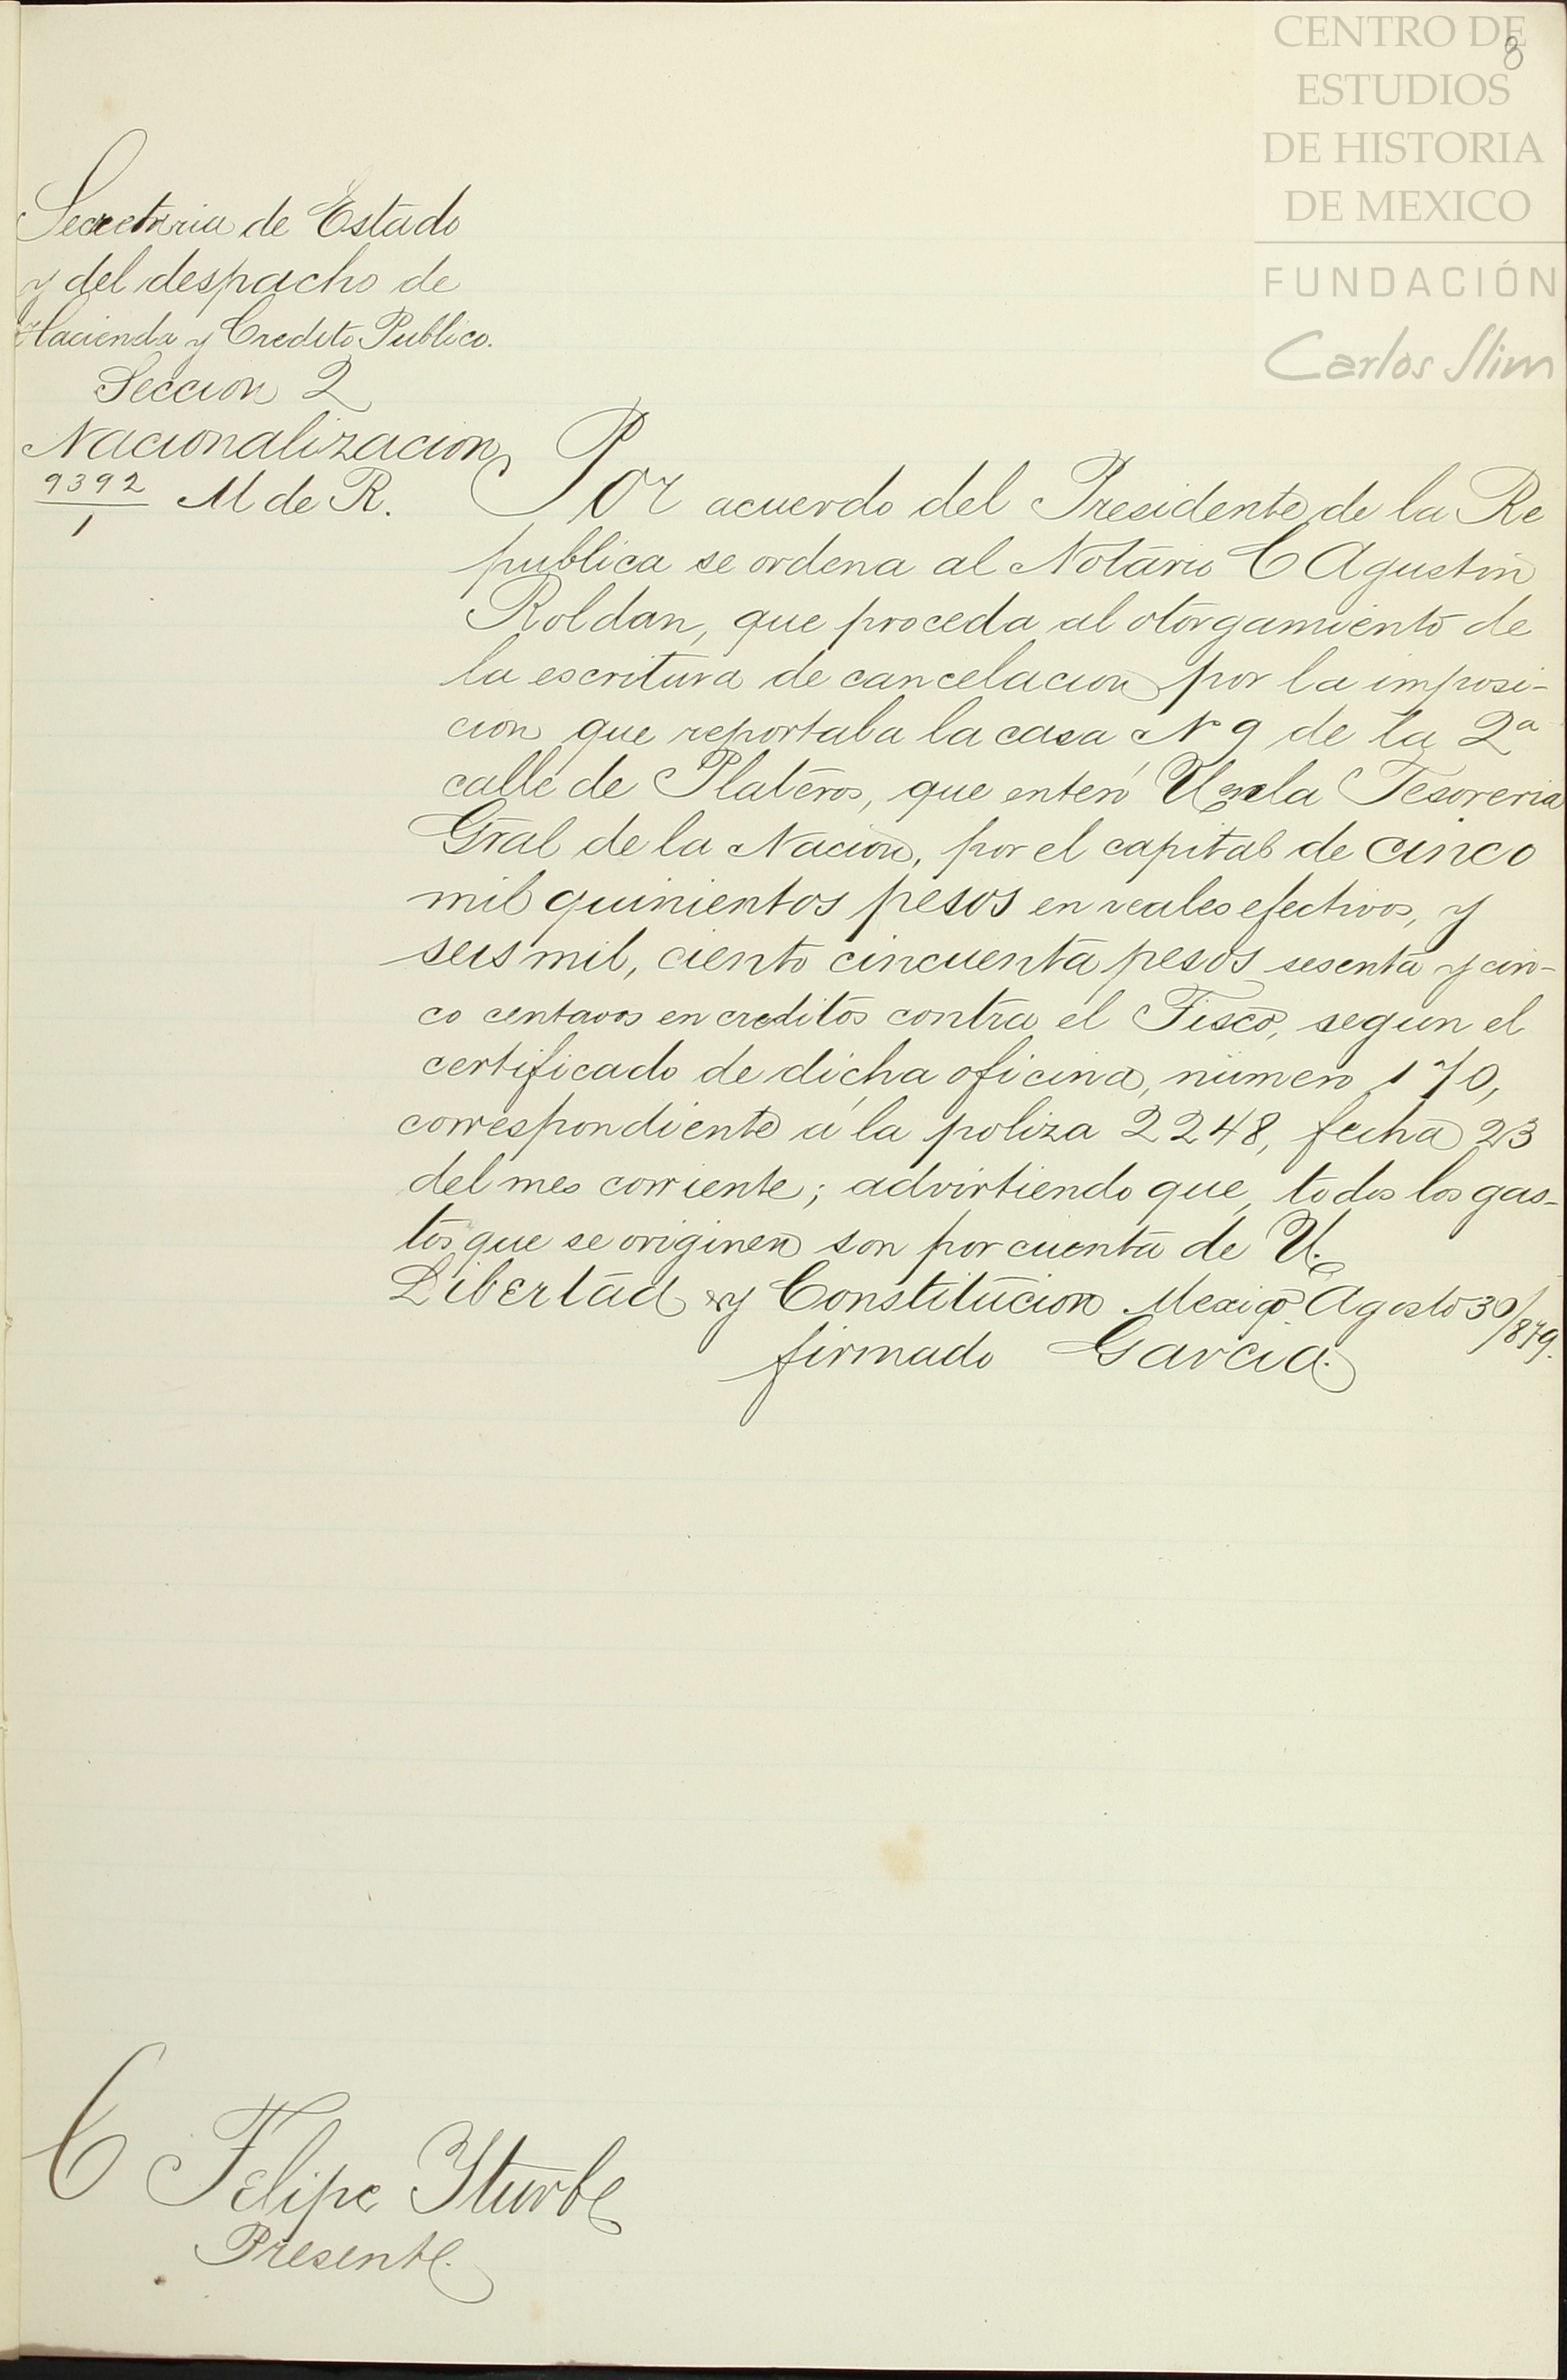 CENTRO DE
ESTUDIOS
DE HISTORIA
DE MEXICO
FUNDACIÓN
Carlos Slim
8
Secretaria de Estado
y del despacho de
Hacienda y Credito Publico.
Seccion 2
Nacionalizacion
9392
1
M de R.
Por acuerdo del Presidente de la Re
publica se ordena al Notario C Agustin
Roldan, que proceda al otorgamiento de
la escritura de cancelacion por la imposi-
cion que reportaba la casa Nº 9 de la 2a
calle de Plateros, que enteró U en la Tesoreria
Gral de la Nacion, por el capital de cinco
mil quinientos pesos en reales efectivos, y
seis mil, ciento cincuenta pesos sesenta y cin-
co centavos en creditos contra el Fisco, segun el
certificado de dicha oficina, número 170,
correspondiente á la poliza 2248, fecha 23
del mes corriente; advirtiendo que, todos los gas-
tos que se originen son por cuenta de U.
Libertad y Constitucion Mexico Agosto 30/879.
firmado Garcia.
C Felipe Yturbe
Presente.